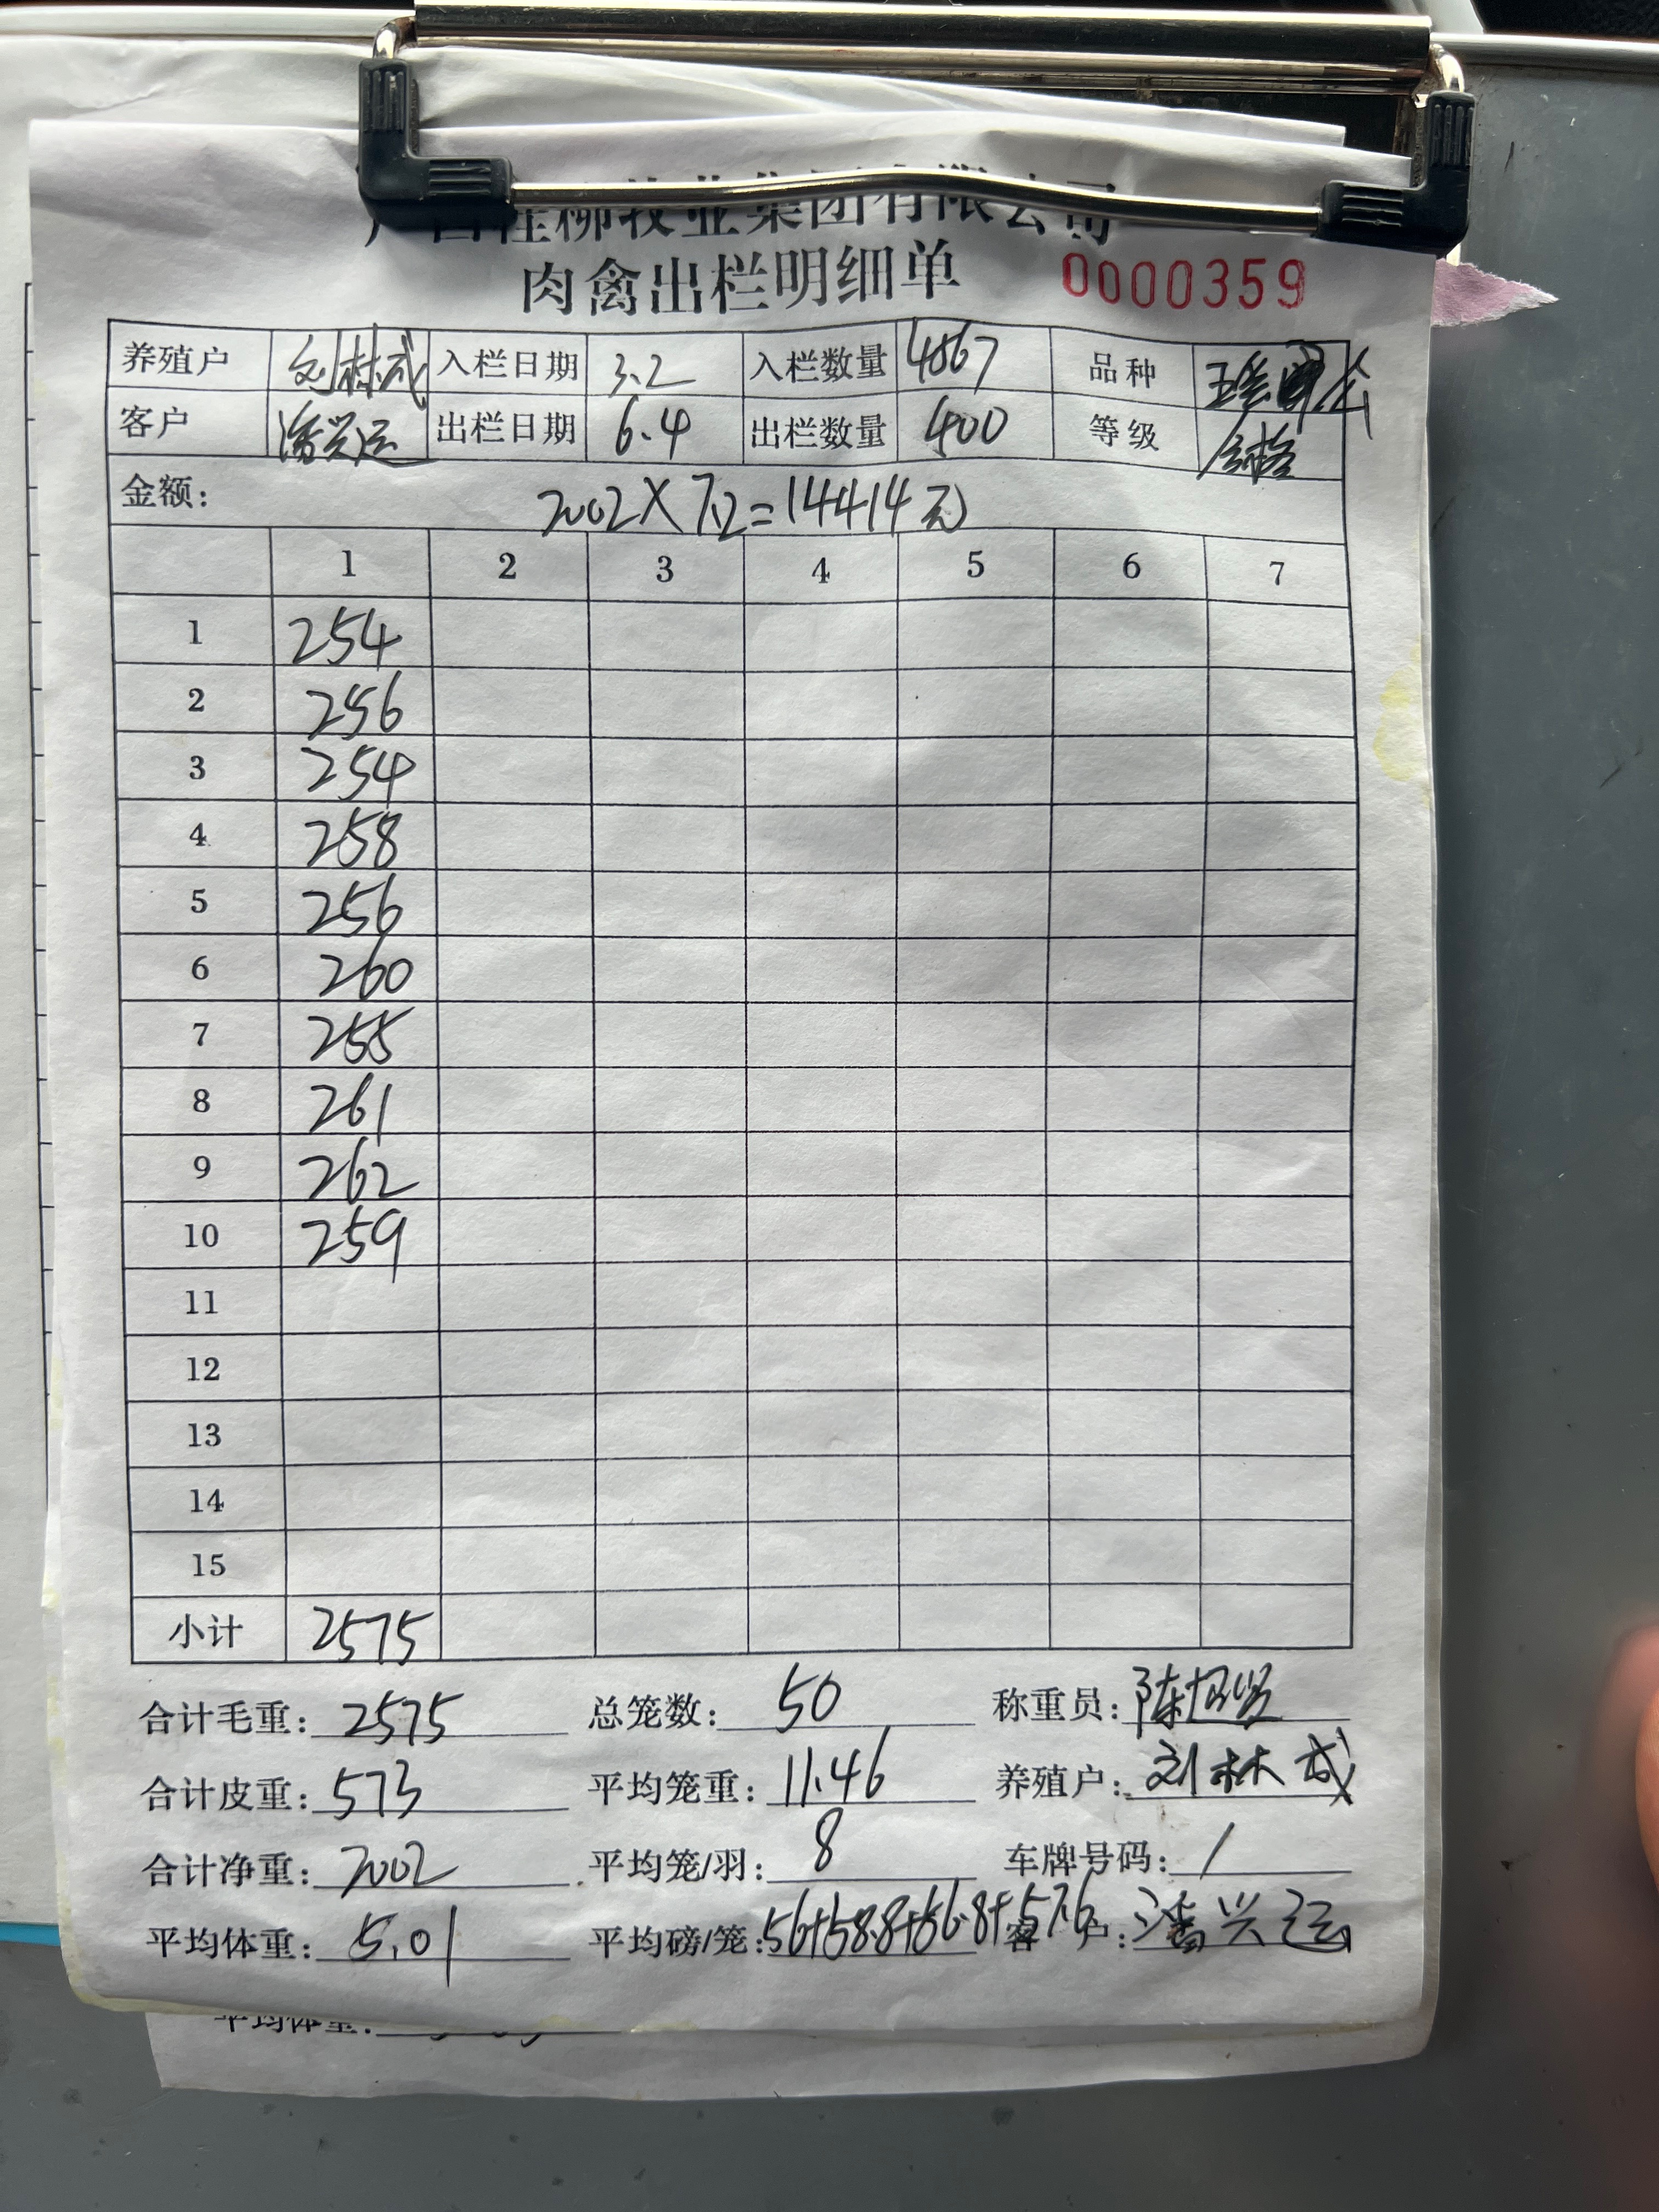 广西桂柳牧业集团有限公司
肉禽出栏明细单 0000359
养殖户 刘林成 入栏日期 3.2 入栏数量 4867 品种
客户 潘兴运 出栏日期 6.4 出栏数量 400 等级 合格
金额： 2002X7.2=14414元
1 2 3 4 5 6 7
1 254
2 256
3 254
4 258
5 256
6 260
7 255
8 261
9 262
10 259
11
12
13
14
15
小计 2575
合计毛重：2575 总笼数：50 称重员：
合计皮重：573 平均笼重：11.46 养殖户：刘林成
合计净重：2002 平均笼/羽：8 车牌号码：/
平均体重：5.01 平均磅/笼：56+58.8+56.8+57.6 客户：潘兴运
平均体重：